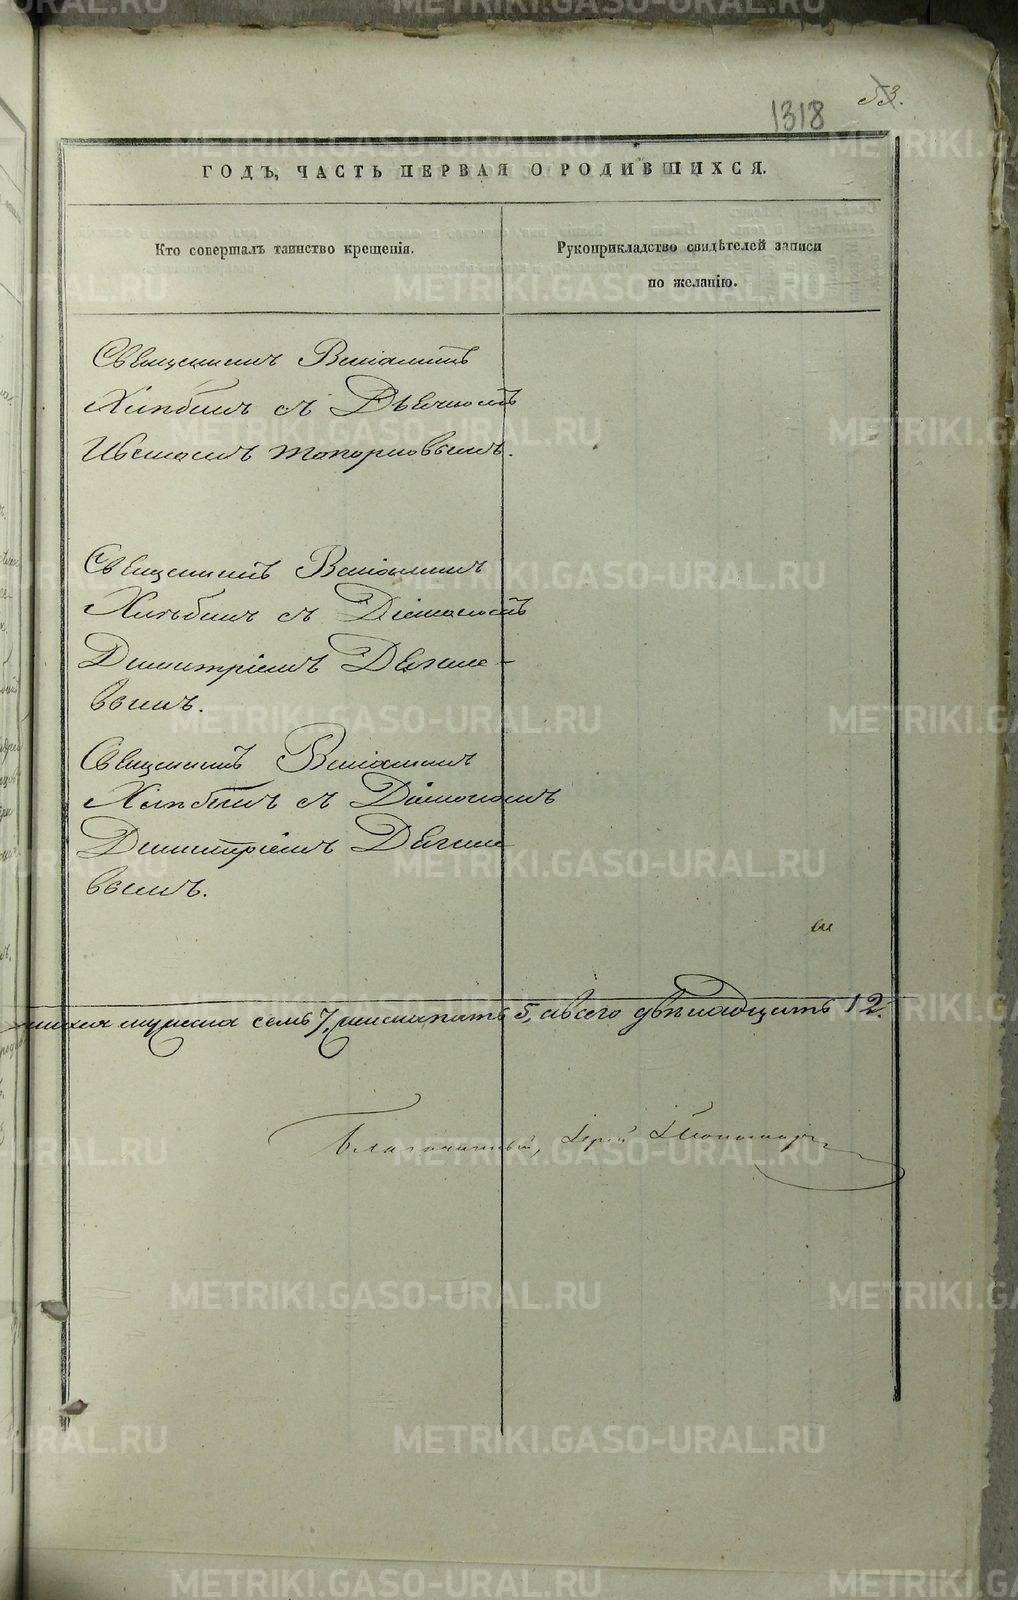 53.
1318
ГОДЪ, ЧАСТЬ ПЕРВАЯ О РОДИВШИХСЯ.
Кто совершалъ таинство крещенія.
Рукоприкладство свидѣтелей записи
по желанію.
Священникъ Веніаминъ
Хлѣбинъ съ Дьячкомъ
Иваномъ Топорковымъ.
Священникъ Веніаминъ
Хлѣбинъ съ Діакономъ
Димитріемъ Дягиле-
вымъ.
Священникъ Веніаминъ
Хлѣбинъ съ Діакономъ
Димитріемъ Дягиле
вымъ.
мужска семь 7, женска пять 5, а всего двѣнадцать 12.
Благочинный, Іерей
METRIKI.GASO-URAL.RU